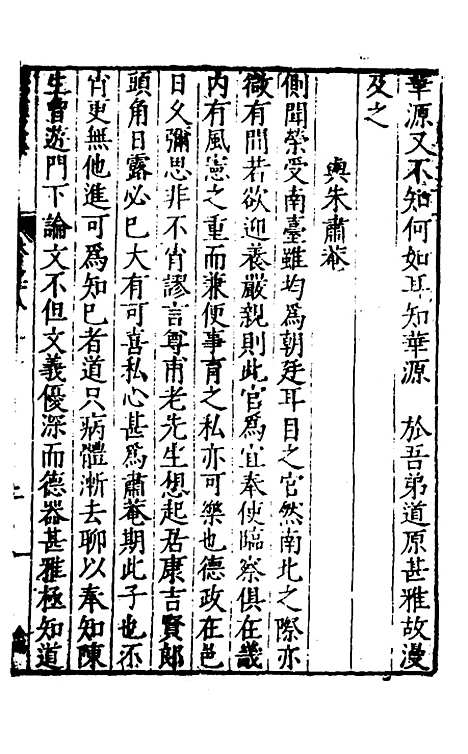 華源又不知何如耳知華源　於吾弟道原甚雅故漫
及之
與朱肅菴
側聞榮受南臺雖均為朝廷耳目之官然南北之際亦
微有間若欲迎養嚴親則此官為宜奉使臨察俱在畿
內有風憲之重而兼便事育之私亦可樂也德政在邑
日久彌思非不肖謬言尊甫老先生想起居康吉賢郎
頭角日露必巳大有可喜私心甚為肅菴期此子也不
肖更無他進可為知巳者道只病體漸去聊以奉知陳
生曾遊門下論文不但文義優深而德器甚雅極知道